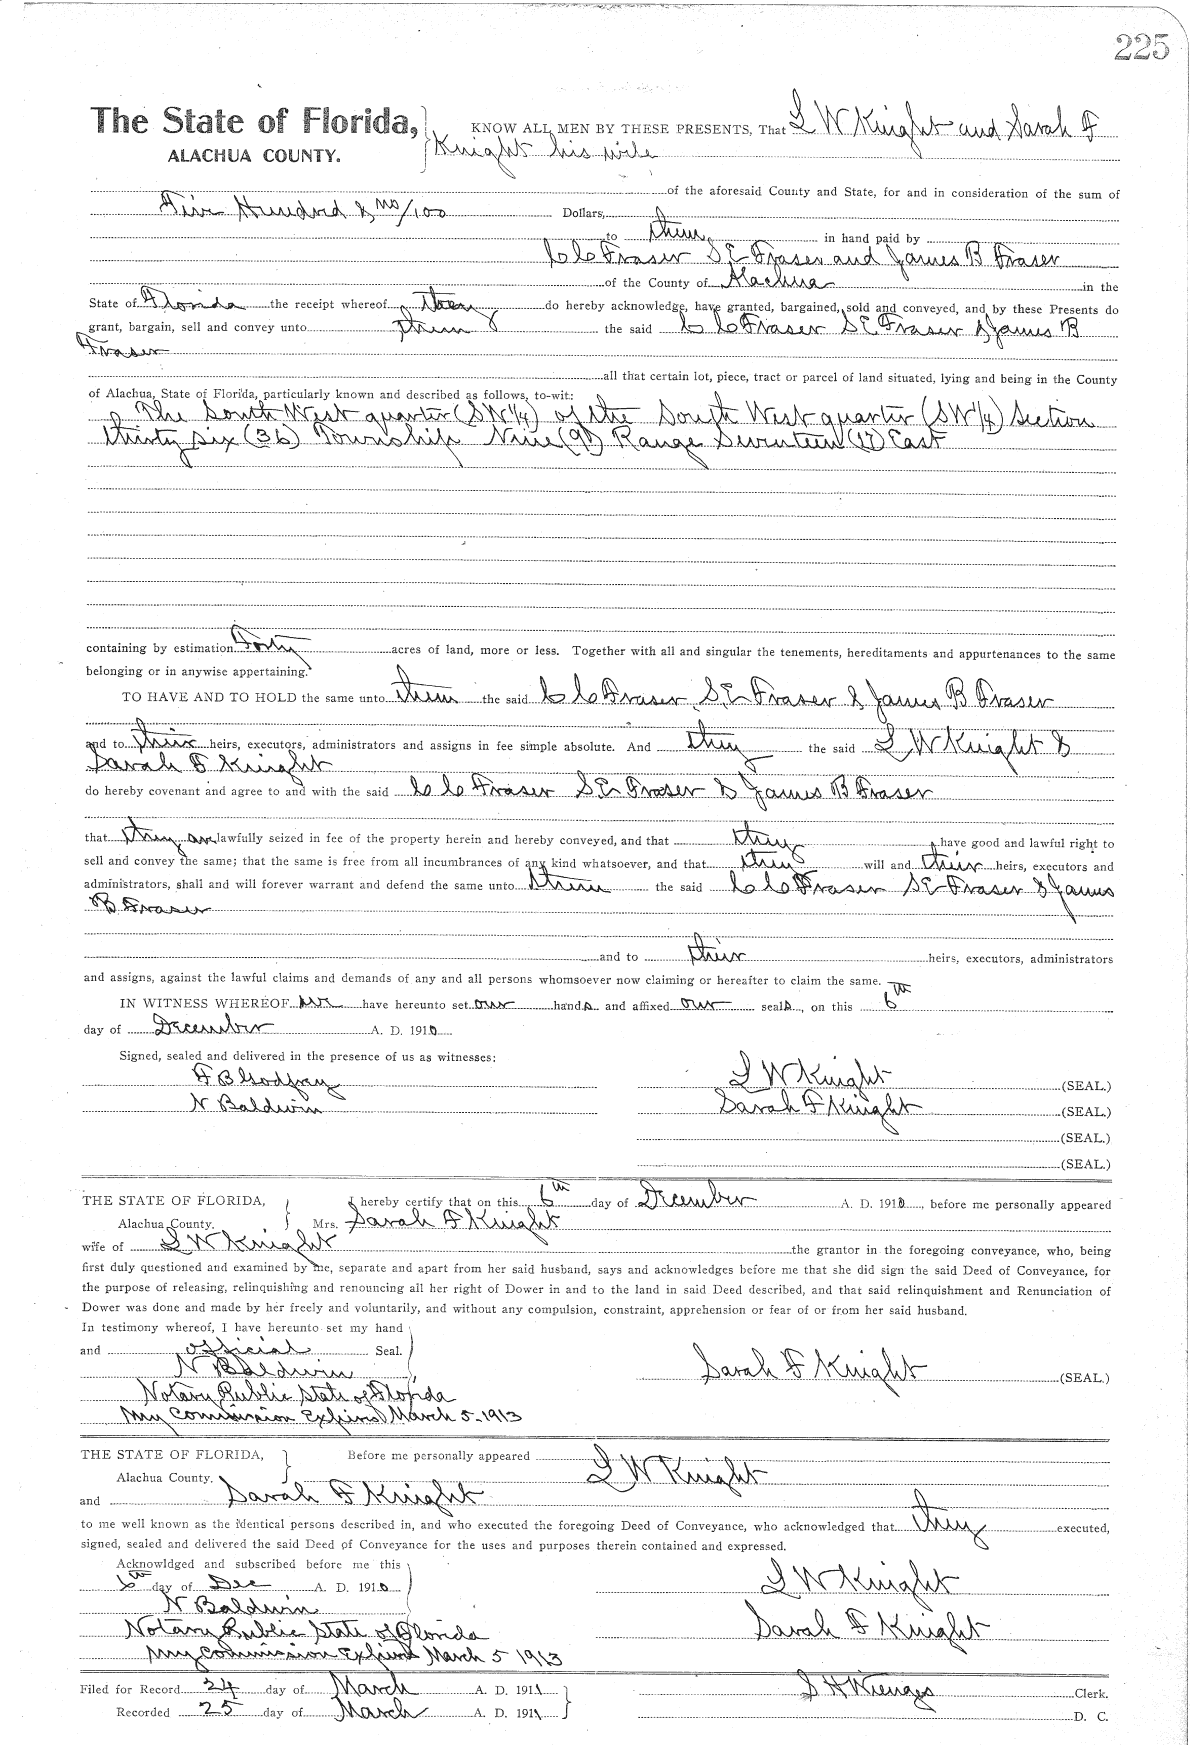 225
The State of Florida, KNOW ALL MEN BY THESE PRESENTS, That L W Knight and Sarah F
ALACHUA COUNTY. Knight his wife
of the aforesaid County and State, for and in consideration of the sum of
Five Hundred & no/100 Dollars,
to them in hand paid by
C C Fraser S E Fraser and James B Fraser
of the County of Alachua in the
State of Florida the receipt whereof they do hereby acknowledge, have granted, bargained, sold and conveyed, and by these Presents do
grant, bargain, sell and convey unto them the said C C Fraser S E Fraser & James B
Fraser
all that certain lot, piece, tract or parcel of land situated, lying and being in the County
of Alachua, State of Florida, particularly known and described as follows, to-wit:
The South West quarter (SW 1/4) of the South West quarter (SW 1/4) Section
thirty six (36) Township Nine (9) Range Seventeen (17) East
containing by estimation Forty acres of land, more or less. Together with all and singular the tenements, hereditaments and appurtenances to the same
belonging or in anywise appertaining.
TO HAVE AND TO HOLD the same unto them the said C C Fraser, S. E Fraser & James B Fraser
and to their heirs, executors, administrators and assigns in fee simple absolute. And they the said L W Knight &
Sarah F Knight
do hereby covenant and agree to and with the said C C Fraser S E Fraser & James B Fraser
that they are lawfully seized in fee of the property herein and hereby conveyed, and that they have good and lawful right to
sell and convey the same; that the same is free from all incumbrances of any kind whatsoever, and that they will and their heirs, executors and
administrators, shall and will forever warrant and defend the same unto them the said C C Fraser S E Fraser & James
B Fraser
and to their heirs, executors, administrators
and assigns, against the lawful claims and demands of any and all persons whomsoever now claiming or hereafter to claim the same.
IN WITNESS WHEREOF we have hereunto set our hands and affixed our seals, on this 6th
day of December A. D. 1910
Signed, sealed and delivered in the presence of us as witnesses:
F B Godfrey L W Knight (SEAL.)
N Baldwin Sarah F Knight (SEAL.)
(SEAL.)
(SEAL.)
THE STATE OF FLORIDA, I hereby certify that on this 6th day of December A. D. 1910, before me personally appeared
Alachua County. Mrs. Sarah F Knight
wife of L W Knight the grantor in the foregoing conveyance, who, being
first duly questioned and examined by me, separate and apart from her said husband, says and acknowledges before me that she did sign the said Deed of Conveyance, for
the purpose of releasing, relinquishing and renouncing all her right of Dower in and to the land in said Deed described, and that said relinquishment and Renunciation of
Dower was done and made by her freely and voluntarily, and without any compulsion, constraint, apprehension or fear of or from her said husband.
In testimony whereof, I have hereunto set my hand
and official Seal.
N Baldwin Sarah F Knight (SEAL.)
Notary Public State of Florida
My Commission Expires March 5-1913
THE STATE OF FLORIDA, Before me personally appeared L W Knight
Alachua County.
and Sarah F Knight
to me well known as the identical persons described in, and who executed the foregoing Deed of Conveyance, who acknowledged that they executed,
signed, sealed and delivered the said Deed of Conveyance for the uses and purposes therein contained and expressed.
Acknowldged and subscribed before me this
6th day of Dec A. D. 1910 L W Knight
N Baldwin
Notary Public State of Florida Sarah F Knight
My Commission Expires March 5 1913
Filed for Record 24 day of March A. D. 1911 S H Wienges Clerk.
Recorded 25 day of March A. D. 1911 D. C.